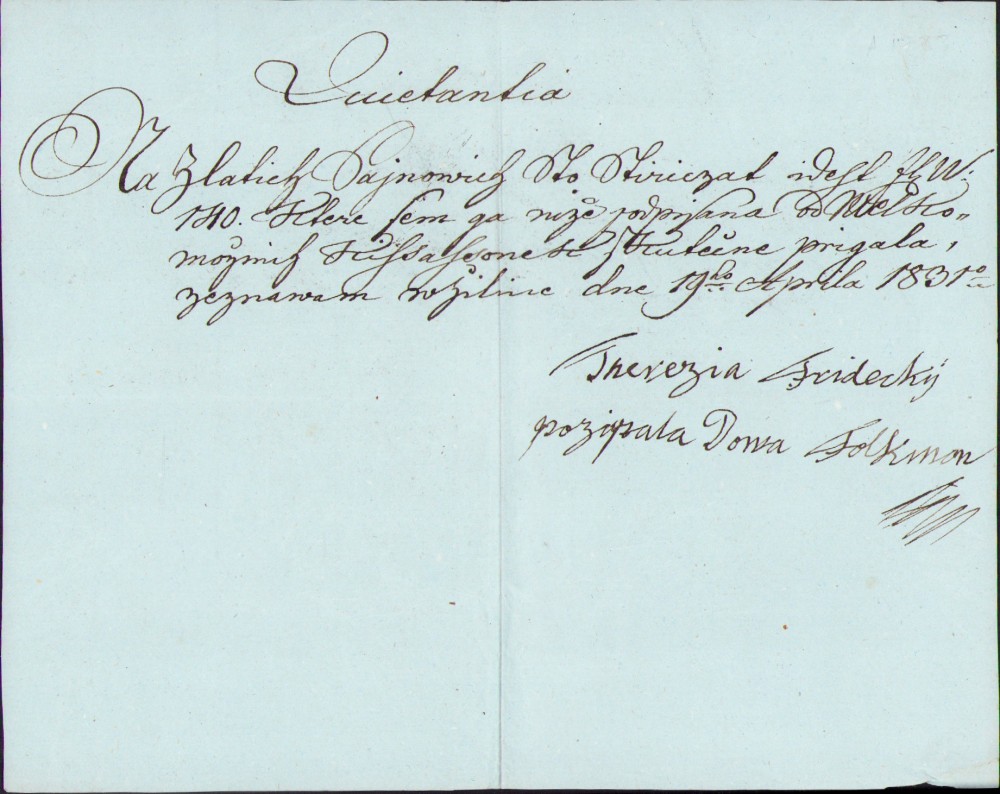 Quietantia
Na Zlatich Šajnowich Sto Stiriczat idest fl W:
140. Ktere sem ga niže podpisana od Welko-
možnih Zkutečne prigala,
zeznawam wžiline dne 19ho Aprila 1831o
Therezia Fridecký
pozipala Dowa Folkman